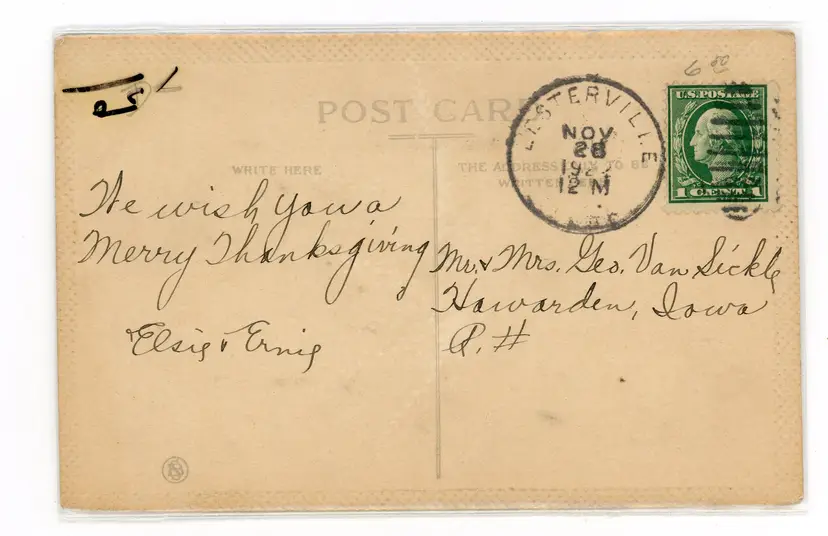 POST CARD
WRITE HERE
THE ADDRESS ONLY TO BE
WRITTEN HERE
LESTERVILLE
NOV
28
12 M
U.S. POSTAGE
1 CENT 1
We wish you a
Merry Thanksgiving
Elsie & Ernie
Mr. & Mrs. Geo. Van Sickle
Hawarden, Iowa
R. #